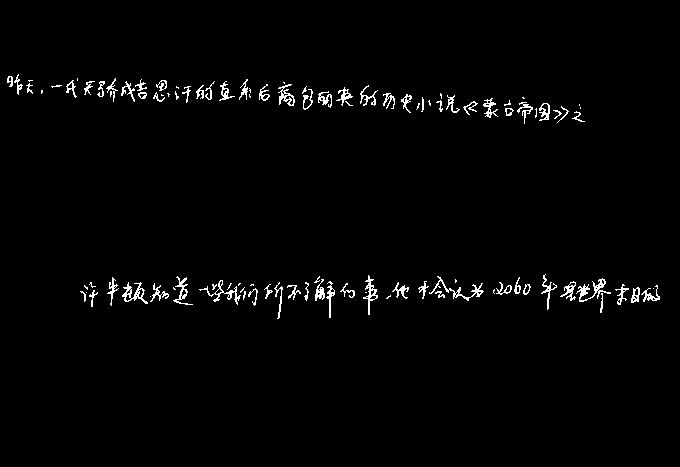 昨天,一代天骄成吉思汗的直系后裔包丽英的历史小说《蒙古帝国》之
许牛顿知道一些我们所不了解的事,他才会认为2060年是世界末日的